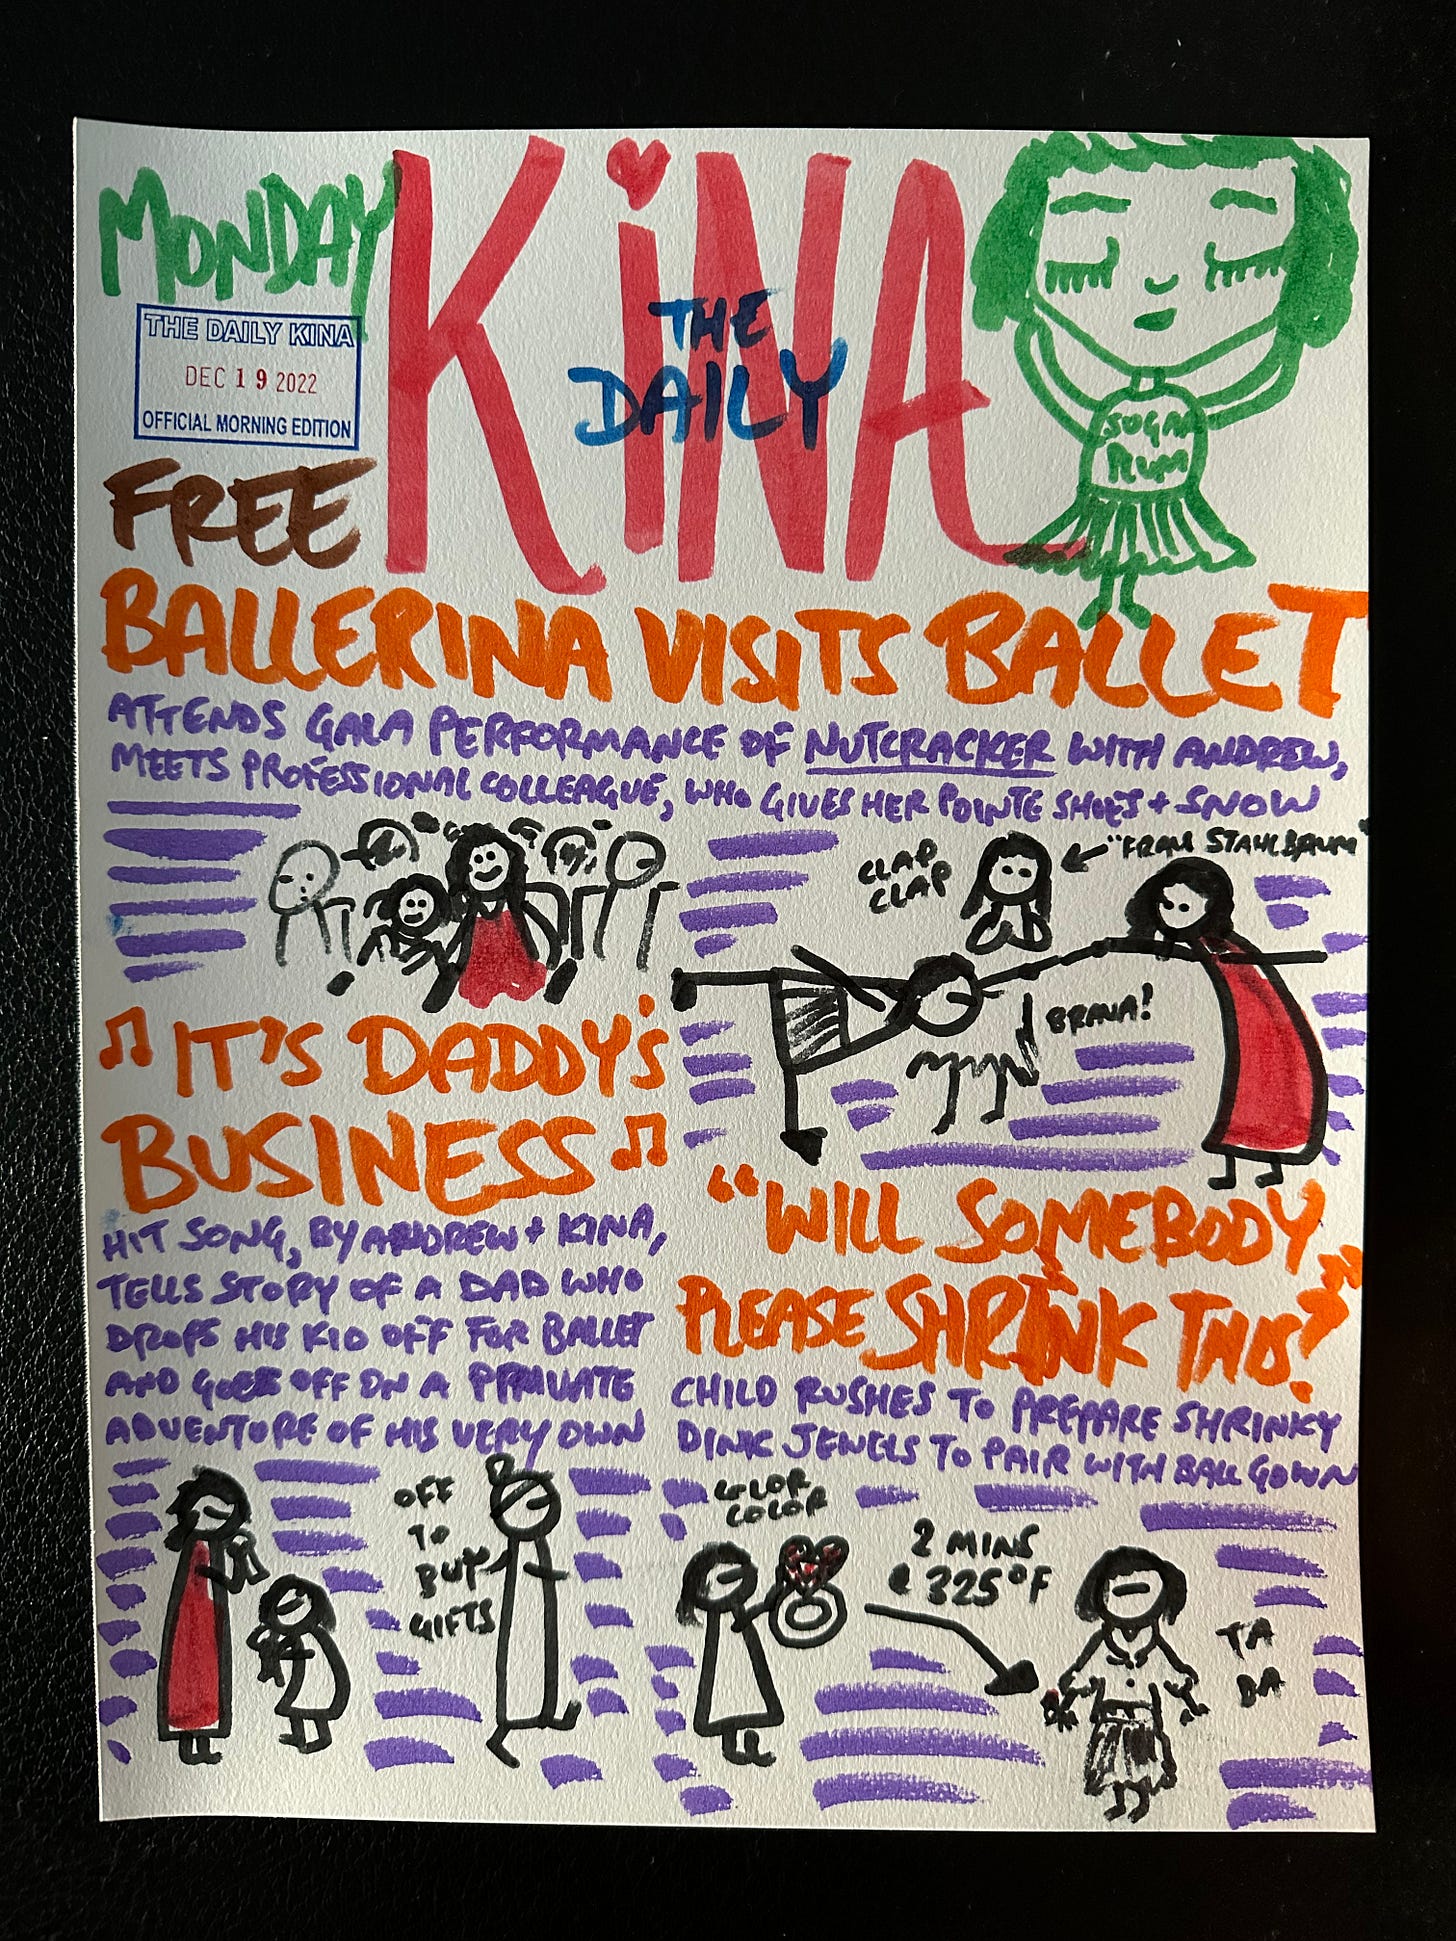 MONDAY
KiNA
THE
DAILY
THE DAILY KINA
DEC 19 2022
OFFICIAL MORNING EDITION
FREE
SUGAR
PLUM
BALLERINA VISITS BALLET
ATTENDS GALA PERFORMANCE OF NUTCRACKER WITH ANDREW,
MEETS PROFESSIONAL COLLEAGUE, WHO GIVES HER POINTE SHOES + SNOW
CLAP
CLAP
"FRAU STAHLBAUM"
BRAVA!
♫ IT'S DADDY'S
BUSINESS ♫
HIT SONG, BY ANDREW + KINA,
TELLS STORY OF A DAD WHO
DROPS HIS KID OFF FOR BALLET
AND GOES OFF ON A PRIVATE
ADVENTURE OF HIS VERY OWN
OFF
TO
BUY
GIFTS
"WILL SOMEBODY
PLEASE SHRINK THIS?"
CHILD RUSHES TO PREPARE SHRINKY
DINK JEWELS TO PAIR WITH BALL GOWN
COLOR
COLOR
2 MINS
@ 325°F
TA
DA